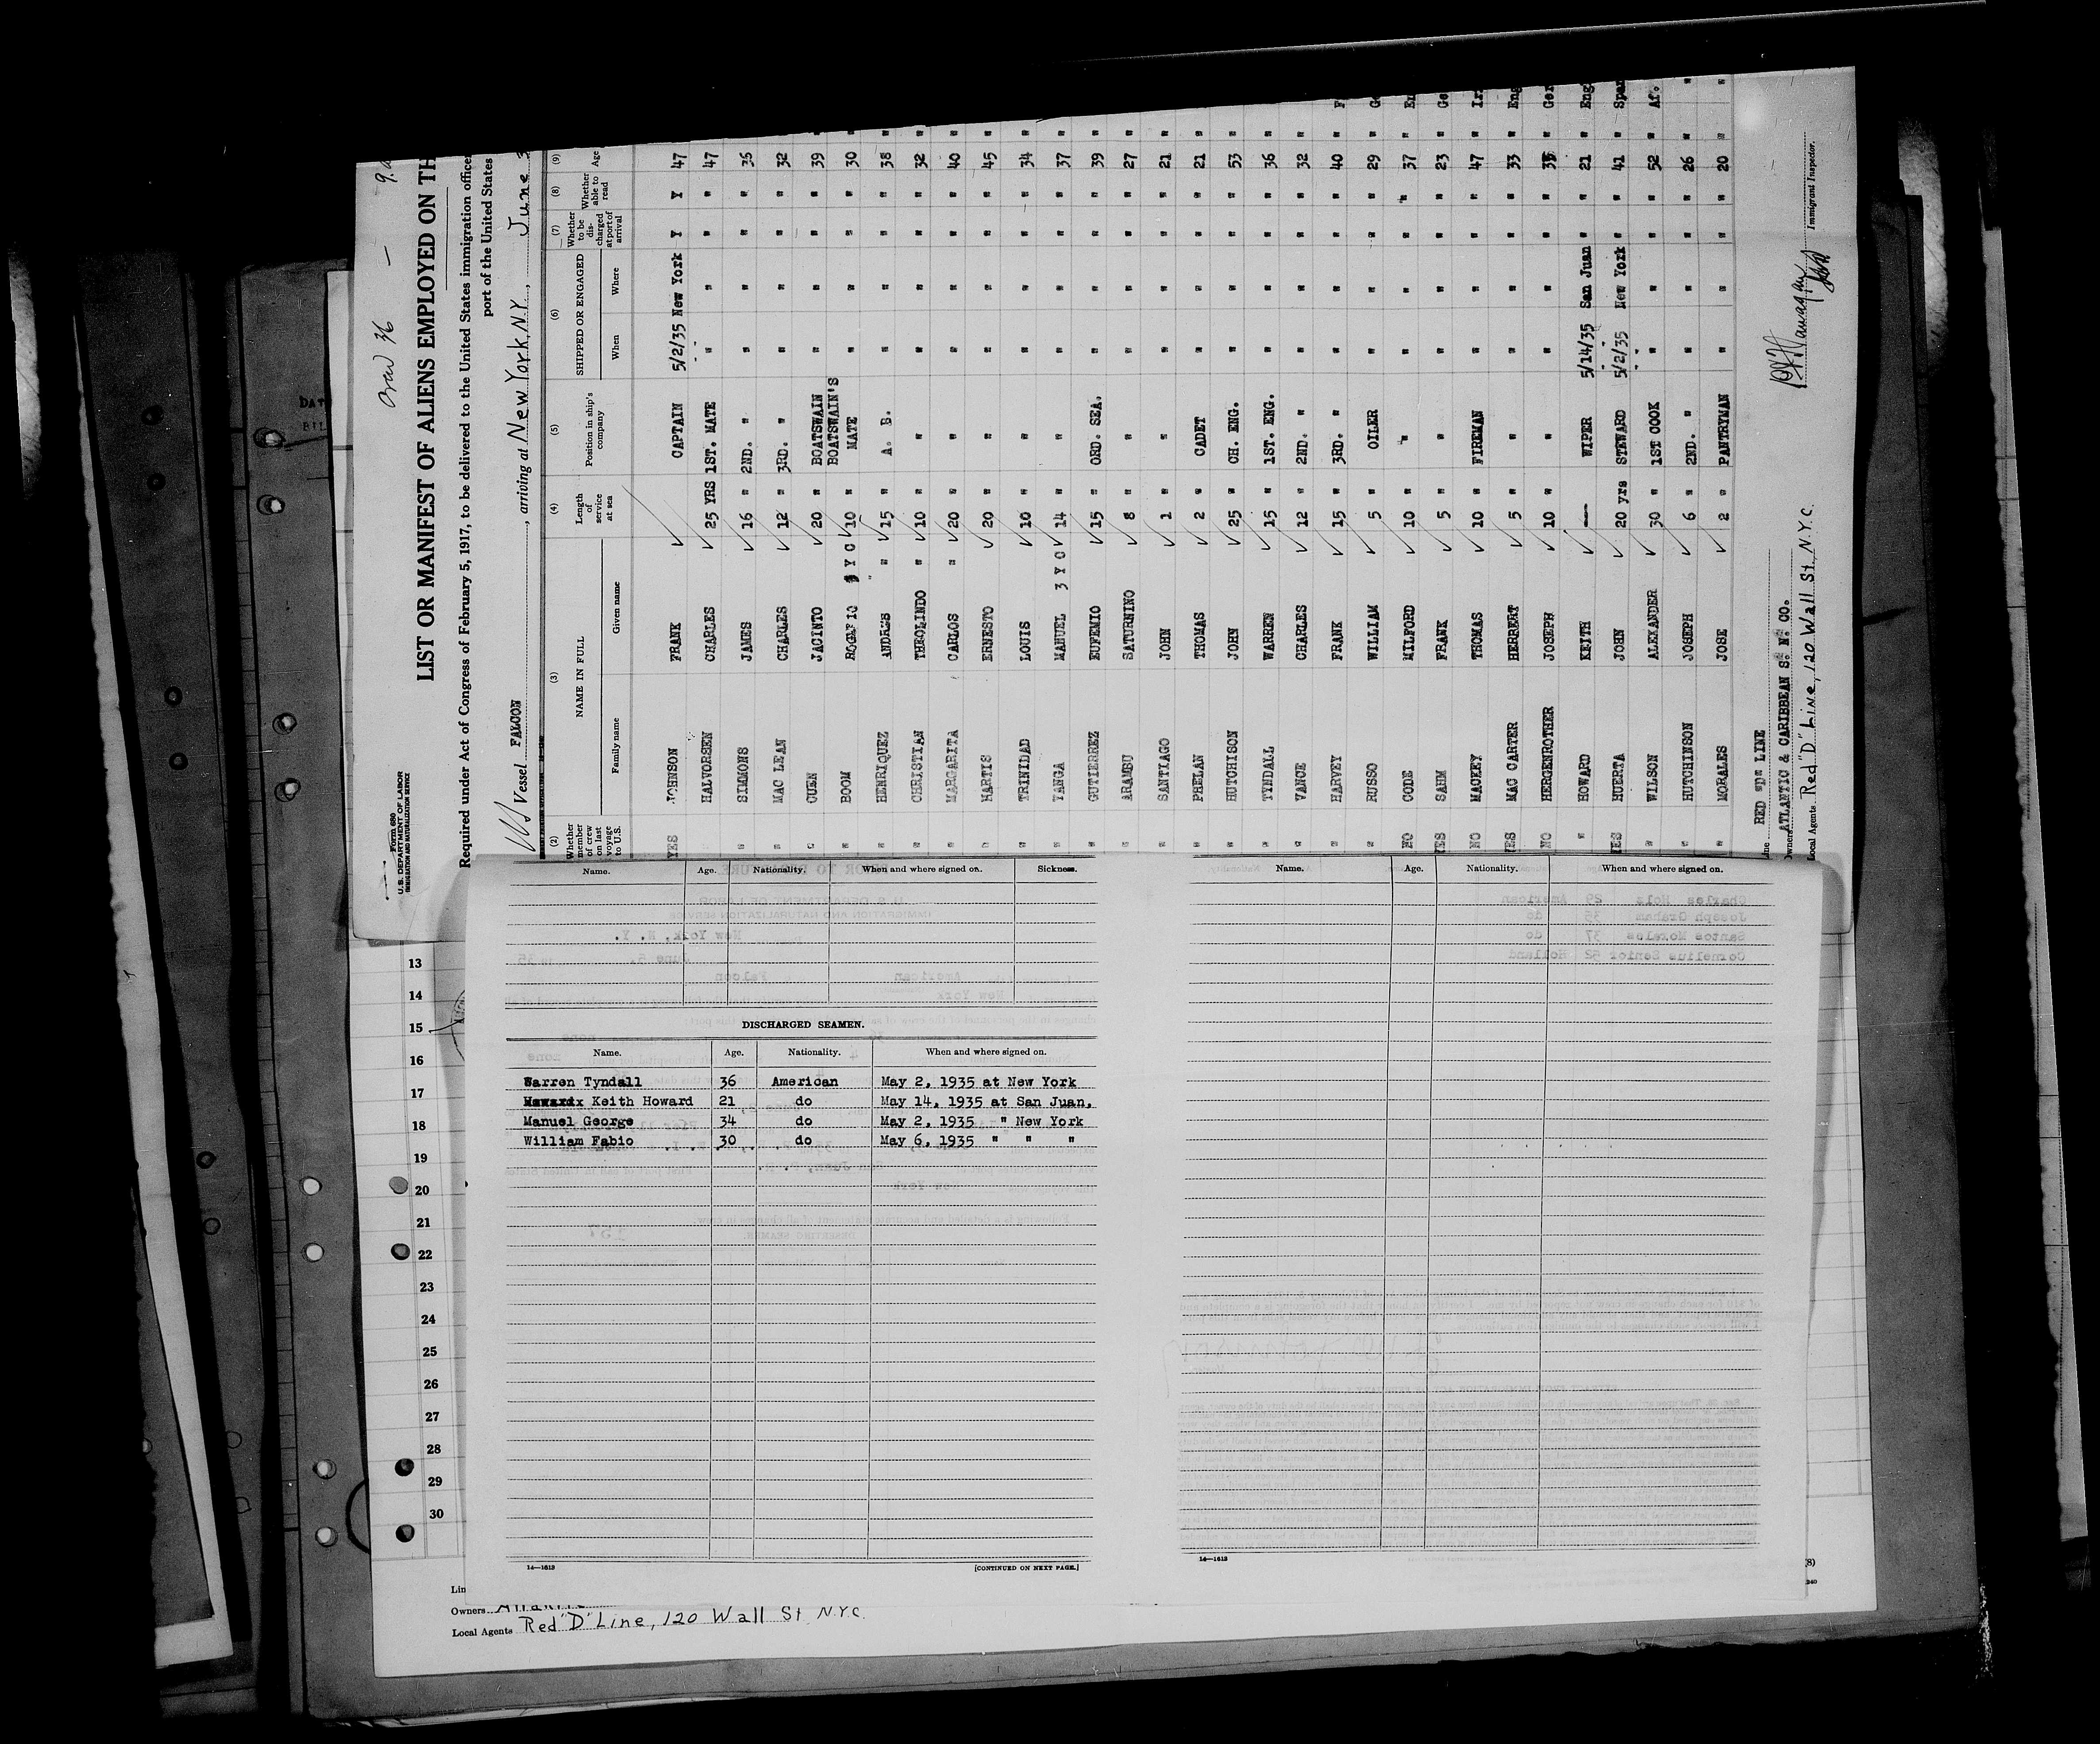 Over 36 — 9.
Form 680
U.S. DEPARTMENT OF LABOR
IMMIGRATION AND NATURALIZATION SERVICE
LIST OR MANIFEST OF ALIENS EMPLOYED ON TH
Required under Act of Congress of February 5, 1917, to be delivered to the United States immigration officer
port of the United States
Vessel FALCON, arriving at New York, N.Y., June
(2) (3) (4) (5) (6) (7) (8) (9)
Whether member of crew on last voyage to U.S. NAME IN FULL Length of service at sea Position in ship's company SHIPPED OR ENGAGED Whether to be discharged at port of arrival Whether able to read Age
Family name Given name When Where
YES JOHNSON FRANK CAPTAIN 5/2/35 New York Y Y 47
" HALVORSEN CHARLES 25 YRS 1ST. MATE " " " " 47 "
" SIMMONS JAMES 16 " 2ND. " " " " " 36 "
" MAC LEAN CHARLES 12 " 3RD. " " " " " 32 "
" CUEN JACINTO 20 " BOATSWAIN " " " " 39 "
" BOOM ROGERIO 3 Y C 10 " BOATSWAIN'S MATE " " " " 30 "
" HENRIQUEZ ANDRES " " 15 " A. B. " " " " 38 "
" CHRISTIAN THEOLINDO " 10 " " " " " " 32 "
" MARGARITA CARLOS " 20 " " " " " " 40 "
" MARTIS ERNESTO 20 " " " " " " 45 "
" TRINIDAD LOUIS 10 " " " " " " 34 "
" YANGA MANUEL 3 Y C 14 " " " " " " 37 "
" GUTIERREZ EUFEMIO 15 " ORD. SEA. " " " " 39 "
" ARAMBU SATURNINO 8 " " " " " " 27 "
" SANTIAGO JOHN 1 " " " " " " 21 "
" PHELAN THOMAS 2 " CADET " " " " 21 "
" HUTCHISON JOHN 25 " CH. ENG. " " " " 53 "
" TYNDALL WARREN 15 " 1ST. ENG. " " " " 36 "
" VANCE CHARLES 12 " 2ND. " " " " " 32 "
" HARVEY FRANK 15 " 3RD. " " " " " 40 " F
" RUSSO WILLIAM 5 " OILER " " " " 29 " Ge
NO CODE MILFORD 10 " " " " " " 37 " En
YES SAHM FRANK 5 " " " " " " 23 " Ge
NO MACKEY THOMAS 10 " FIREMAN " " " " 47 " Ir
YES MAC CARTER HERBERT 5 " " " " " " 33 " Eng
NO HERGENROTHER JOSEPH 10 " " " " " " " Ger
" HOWARD KEITH --- WIPER 5/14/35 San Juan " " 21 " Eng
YES HUERTA JOHN 20 yrs STEWARD 5/2/35 New York " " 41 " Span
" WILSON ALEXANDER 30 " 1ST COOK " " " " 52 " Af.
" HUTCHINSON JOSEPH 6 " 2ND. " " " " " 26 " "
" MORALES JOSE 2 " PANTRYMAN " " " " 20 " "
Line RED "D" LINE
Owners ATLANTIC & CARIBBEAN S. N. CO.
Local Agents Red "D" Line, 120 Wall St. N.Y.C.
Immigrant Inspector.
Name. Age. Nationality. When and where signed on. Sickness.
DISCHARGED SEAMEN.
Name. Age. Nationality. When and where signed on.
Warren Tyndall 36 American May 2, 1935 at New York
Keith Howard 21 do May 14, 1935 at San Juan,
Manuel George 34 do May 2, 1935 " New York
William Fabio 30 do May 6, 1935 " " "
14—1613 [CONTINUED ON NEXT PAGE.]
Name. Age. Nationality. When and where signed on.
14—1613
13
14
15
16
17
18
19
20
21
22
23
24
25
26
27
28
29
30
Lin
Owners
Local Agents Red "D" Line, 120 Wall St N.Y.C.